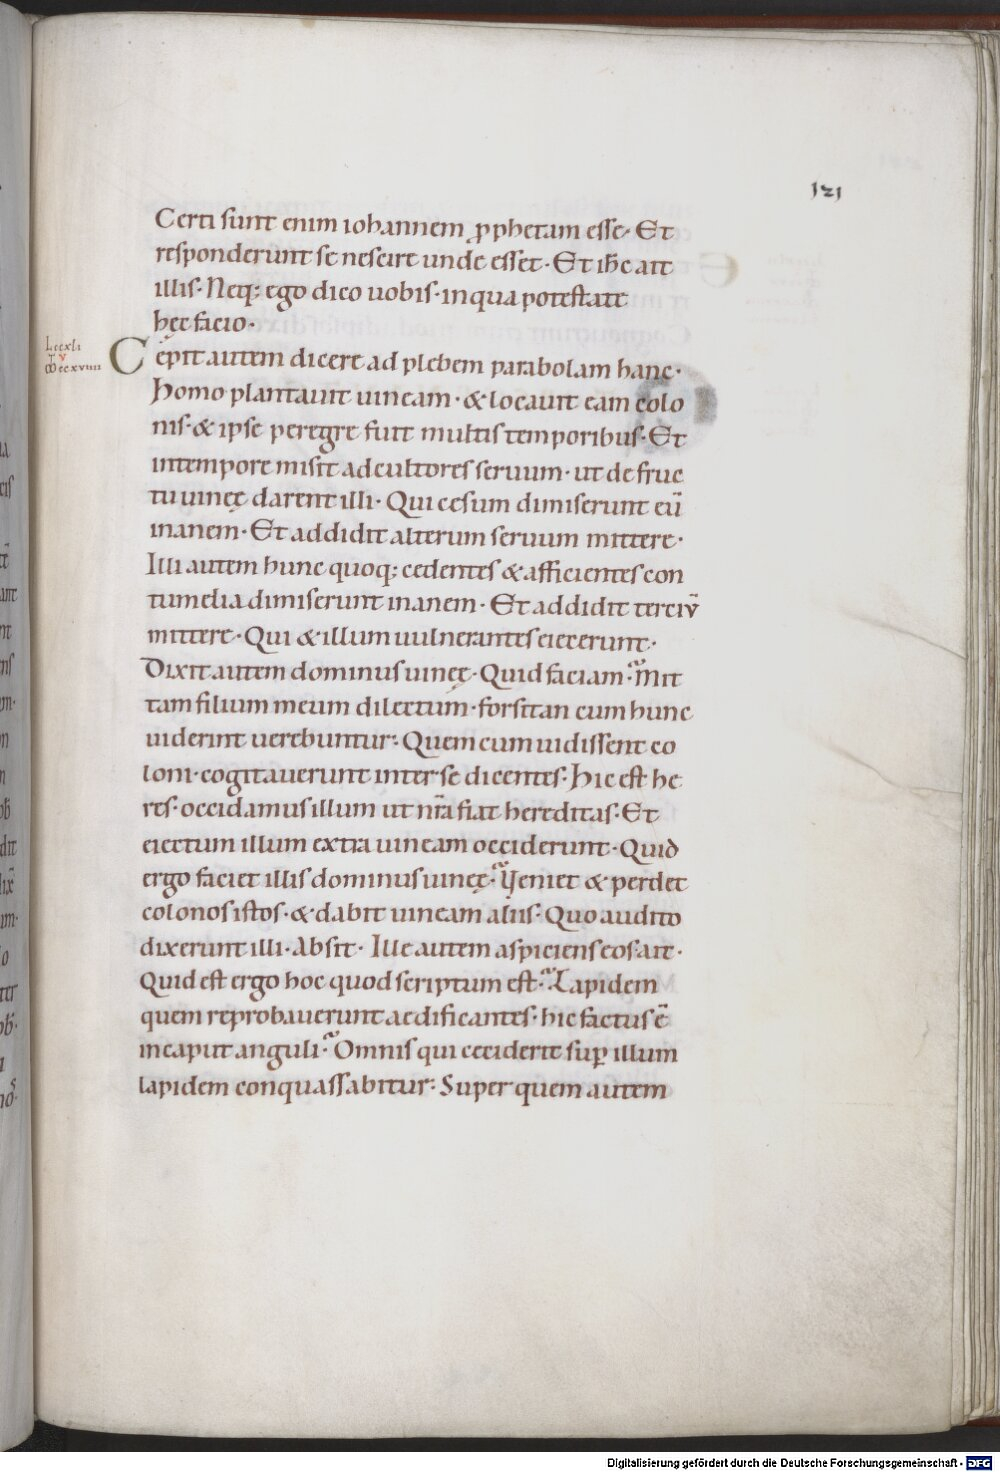 121
Certi sunt enim iohannem ꝓphetam esse· Et
responderunt se nescire unde esset· Et ih̄c ait
illis· Neq; ego dico uobis· in qua potestate
hęc facio·
Lc cxli
M ccxviiii
Cępit autem dicere ad plebem parabolam hanc·
Homo plantauit uineam· & locauit eam colo
nis· & ipse peregre fuit multis temporibus· Et
in tempore misit ad cultores seruum· ut de fruc
tu uineę darent illi· Qui cesum dimiserunt eū
inanem· Et addidit alterum seruum mittere·
Illi autem hunc quoq; cedentes & afficientes con
tumelia dimiserunt inanem· Et addidit terciū
mittere· Qui & illum uulnerantes eiecerunt·
Dixit autem dominus uineę· Quid faciam? Mit
tam filium meum dilectum· forsitan cum hunc
uiderint uerebuntur· Quem cum uidissent co
loni· cogitauerunt inter se dicentes· Hic est he
res· occidamus illum ut nr̄a fiat hereditas· Et
eiectum illum extra uineam occiderunt· Quid
ergo faciet illis dominus uineę? Veniet & perdet
colonos istos· & dabit uineam aliis· Quo audito
dixerunt illi· Absit· Ille autem aspiciens eos ait·
Quid est ergo hoc quod scriptum est? Lapidem
quem reprobauerunt aedificantes· hic factus ē
in caput anguli? Omnis qui ceciderit suꝑ illum
lapidem conquassabitur· Super quem autem
Digitalisierung gefördert durch die Deutsche Forschungsgemeinschaft · DFG